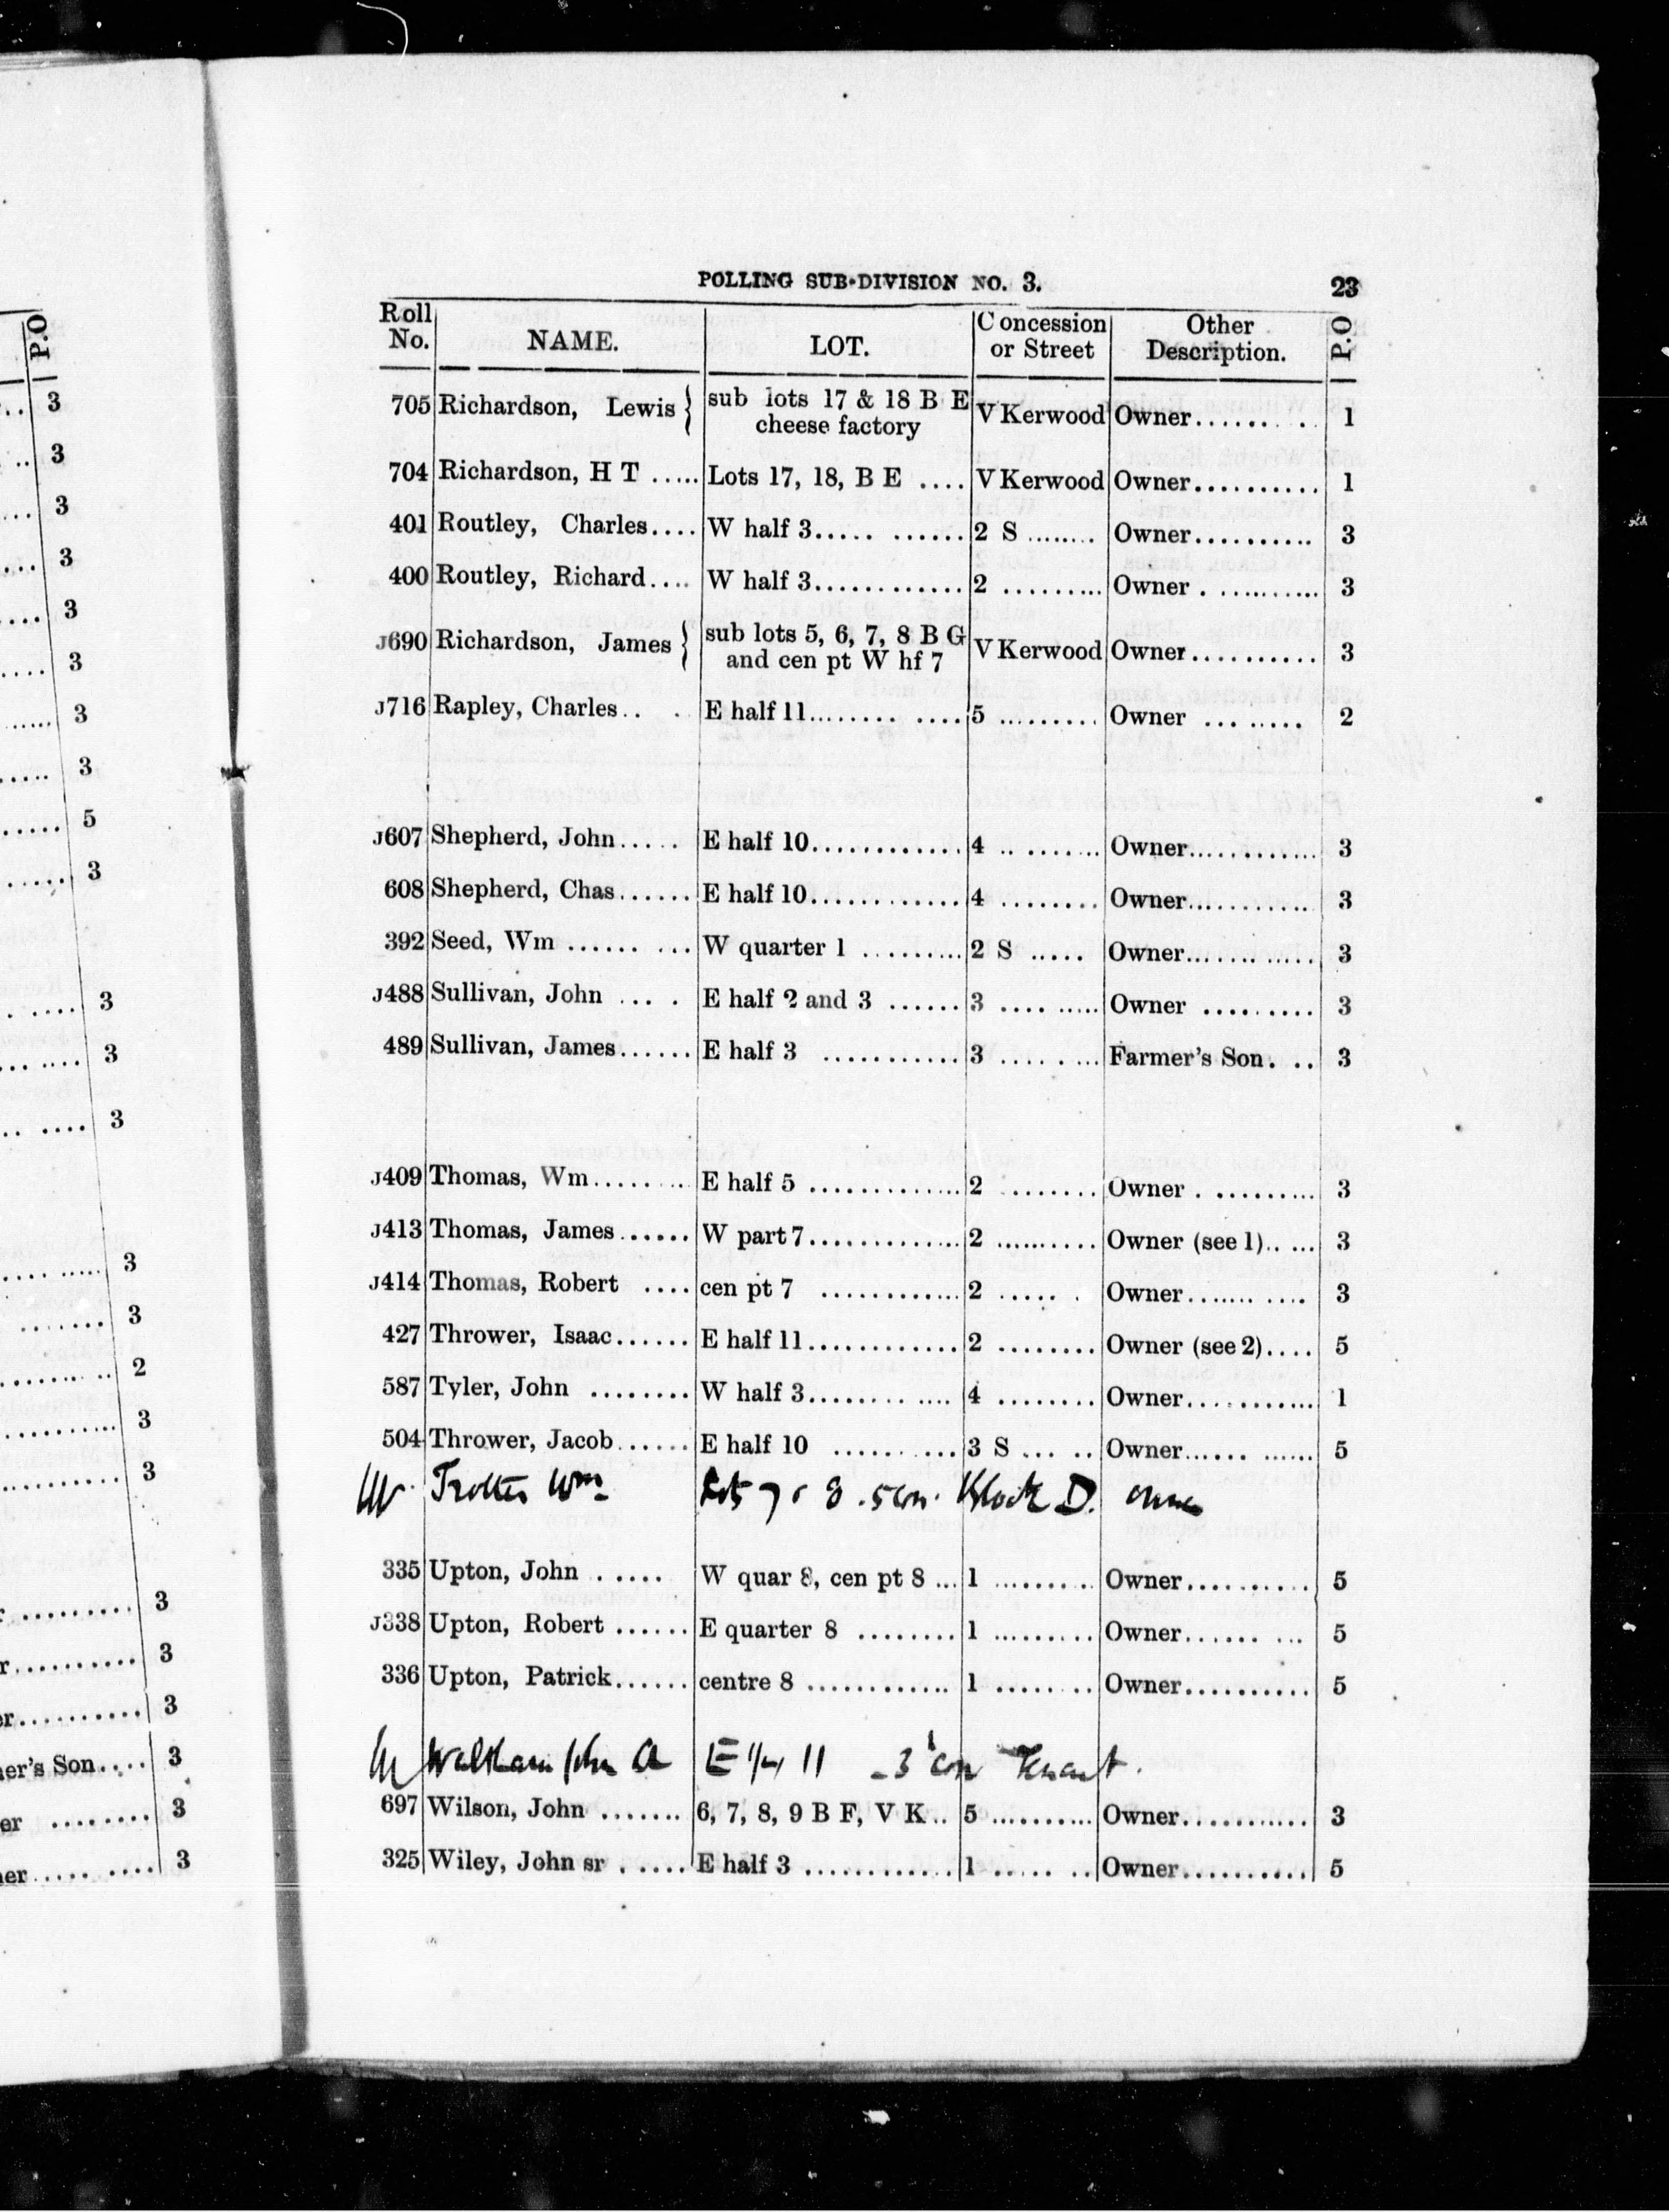 P.O
.. 3
.. 3
... 3
.... 3
.... 3
.... 3
...... 3
..... 3
..... 5
...... 3
. ..... 3
... ..... 3
.. .... 3
.... ..... 3
....... 3
......... 2
.......... 3
.......... 3
......... 3
r.......... 3
er.......... 3
er's Son.... 3
er ........ 3
er..... .... 3
POLLING SUB-DIVISION NO. 3. 23
Roll No. NAME. LOT. Concession or Street Other Description. P.O
705 Richardson, Lewis } sub lots 17 & 18 B E cheese factory V Kerwood Owner....... . . 1
704 Richardson, H T ..... Lots 17, 18, B E .... V Kerwood Owner.......... 1
401 Routley, Charles.... W half 3..... ...... 2 S ........ Owner.......... 3
400 Routley, Richard.... W half 3............ 2 ......... Owner . ......... 3
J690 Richardson, James } sub lots 5, 6, 7, 8 B G and cen pt W hf 7 V Kerwood Owner.......... 3
J716 Rapley, Charles.. . E half 11........ .... 5 ......... Owner ... ..... 2
J607 Shepherd, John..... E half 10............ 4 .. ....... Owner............ 3
608 Shepherd, Chas...... E half 10............ 4 ........ Owner........... 3
392 Seed, Wm ...... ... W quarter 1 ......... 2 S ..... Owner....... ..... 3
J488 Sullivan, John ... . E half 2 and 3 ...... 3 .... ..... Owner ......... 3
489 Sullivan, James...... E half 3 ........... 3 .... . ... Farmer's Son. .. 3
J409 Thomas, Wm........ E half 5 ............. 2 ........ Owner . ......... 3
J413 Thomas, James...... W part 7............. 2 ......... Owner (see 1).. ... 3
J414 Thomas, Robert .... cen pt 7 ............ 2 ..... . Owner....... .... 3
427 Thrower, Isaac...... E half 11............ 2 ........ Owner (see 2).... 5
587 Tyler, John ........ W half 3......... .... 4 ........ Owner............ 1
504 Thrower, Jacob...... E half 10 ...... . ... 3 S ... .. Owner...... ...... 5
Trotter Wm 7 8 . 5 con. Block D. owner
335 Upton, John . .... W quar 8, cen pt 8 ... 1 ......... Owner.......... 5
J338 Upton, Robert ...... E quarter 8 ........ 1 ......... Owner...... ... 5
336 Upton, Patrick...... centre 8 ............ 1 ..... .. Owner.......... 5
John A E 1/4 11 3 con Tenant.
697 Wilson, John ....... 6, 7, 8, 9 B F, V K.. 5 .......... Owner........... 3
325 Wiley, John sr . .... E half 3 ............ 1 ..... .. Owner.......... 5